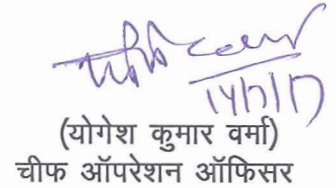 14/7/17
(योगेश कुमार वर्मा)
चीफ ऑपरेशन ऑफिसर